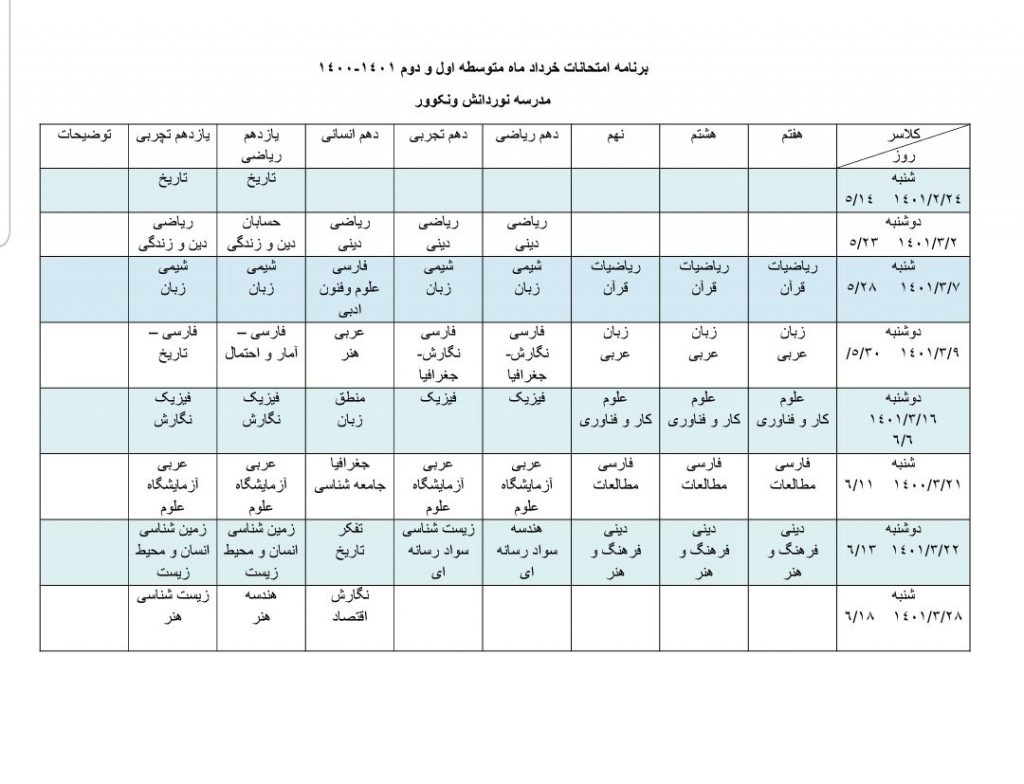 برنامه امتحانات خرداد ماه متوسطه اول و دوم ١٤٠١-١٤٠٠
مدرسه نوردانش ونکوور
کلاسر
روز
هفتم
هشتم
نهم
دهم ریاضی
دهم تجربی
دهم انسانی
یازدهم
ریاضی
یازدهم تچربی
توضیحات
شنبه
١٤٠١/٢/٢٤ ٥/١٤
تاریخ
تاریخ
دوشنبه
١٤٠١/٣/٢ ٥/٢٣
ریاضی
دینی
ریاضی
دینی
ریاضی
دینی
حسابان
دین و زندگی
ریاضی
دین و زندگی
شنبه
١٤٠١/٣/٧ ٥/٢٨
ریاضیات
قرآن
ریاضیات
قرآن
ریاضیات
قرآن
شیمی
زبان
شیمی
زبان
فارسی
علوم وفنون
ادبی
شیمی
زبان
شیمی
زبان
دوشنبه
١٤٠١/٣/٩ ٥/٣٠/
زبان
عربی
زبان
عربی
زبان
عربی
فارسی
نگارش-
جغرافیا
فارسی
نگارش-
جغرافیا
عربی
هنر
فارسی –
آمار و احتمال
فارسی –
تاریخ
دوشنبه
١٤٠١/٣/١٦
٦/٦
علوم
کار و فناوری
علوم
کار و فناوری
علوم
کار و فناوری
فیزیک
فیزیک
منطق
زبان
فیزیک
نگارش
فیزیک
نگارش
شنبه
١٤٠٠/٣/٢١ ٦/١١
فارسی
مطالعات
فارسی
مطالعات
فارسی
مطالعات
عربی
آزمایشگاه
علوم
عربی
آزمایشگاه
علوم
جغرافیا
جامعه شناسی
عربی
آزمایشگاه
علوم
عربی
آزمایشگاه
علوم
دوشنبه
١٤٠١/٣/٢٢ ٦/١٣
دینی
فرهنگ و
هنر
دینی
فرهنگ و
هنر
دینی
فرهنگ و
هنر
هندسه
سواد رسانه
ای
زیست شناسی
سواد رسانه
ای
تفکر
تاریخ
زمین شناسی
انسان و محیط
زیست
زمین شناسی
انسان و محیط
زیست
شنبه
١٤٠١/٣/٢٨ ٦/١٨
نگارش
اقتصاد
هندسه
هنر
زیست شناسی
هنر